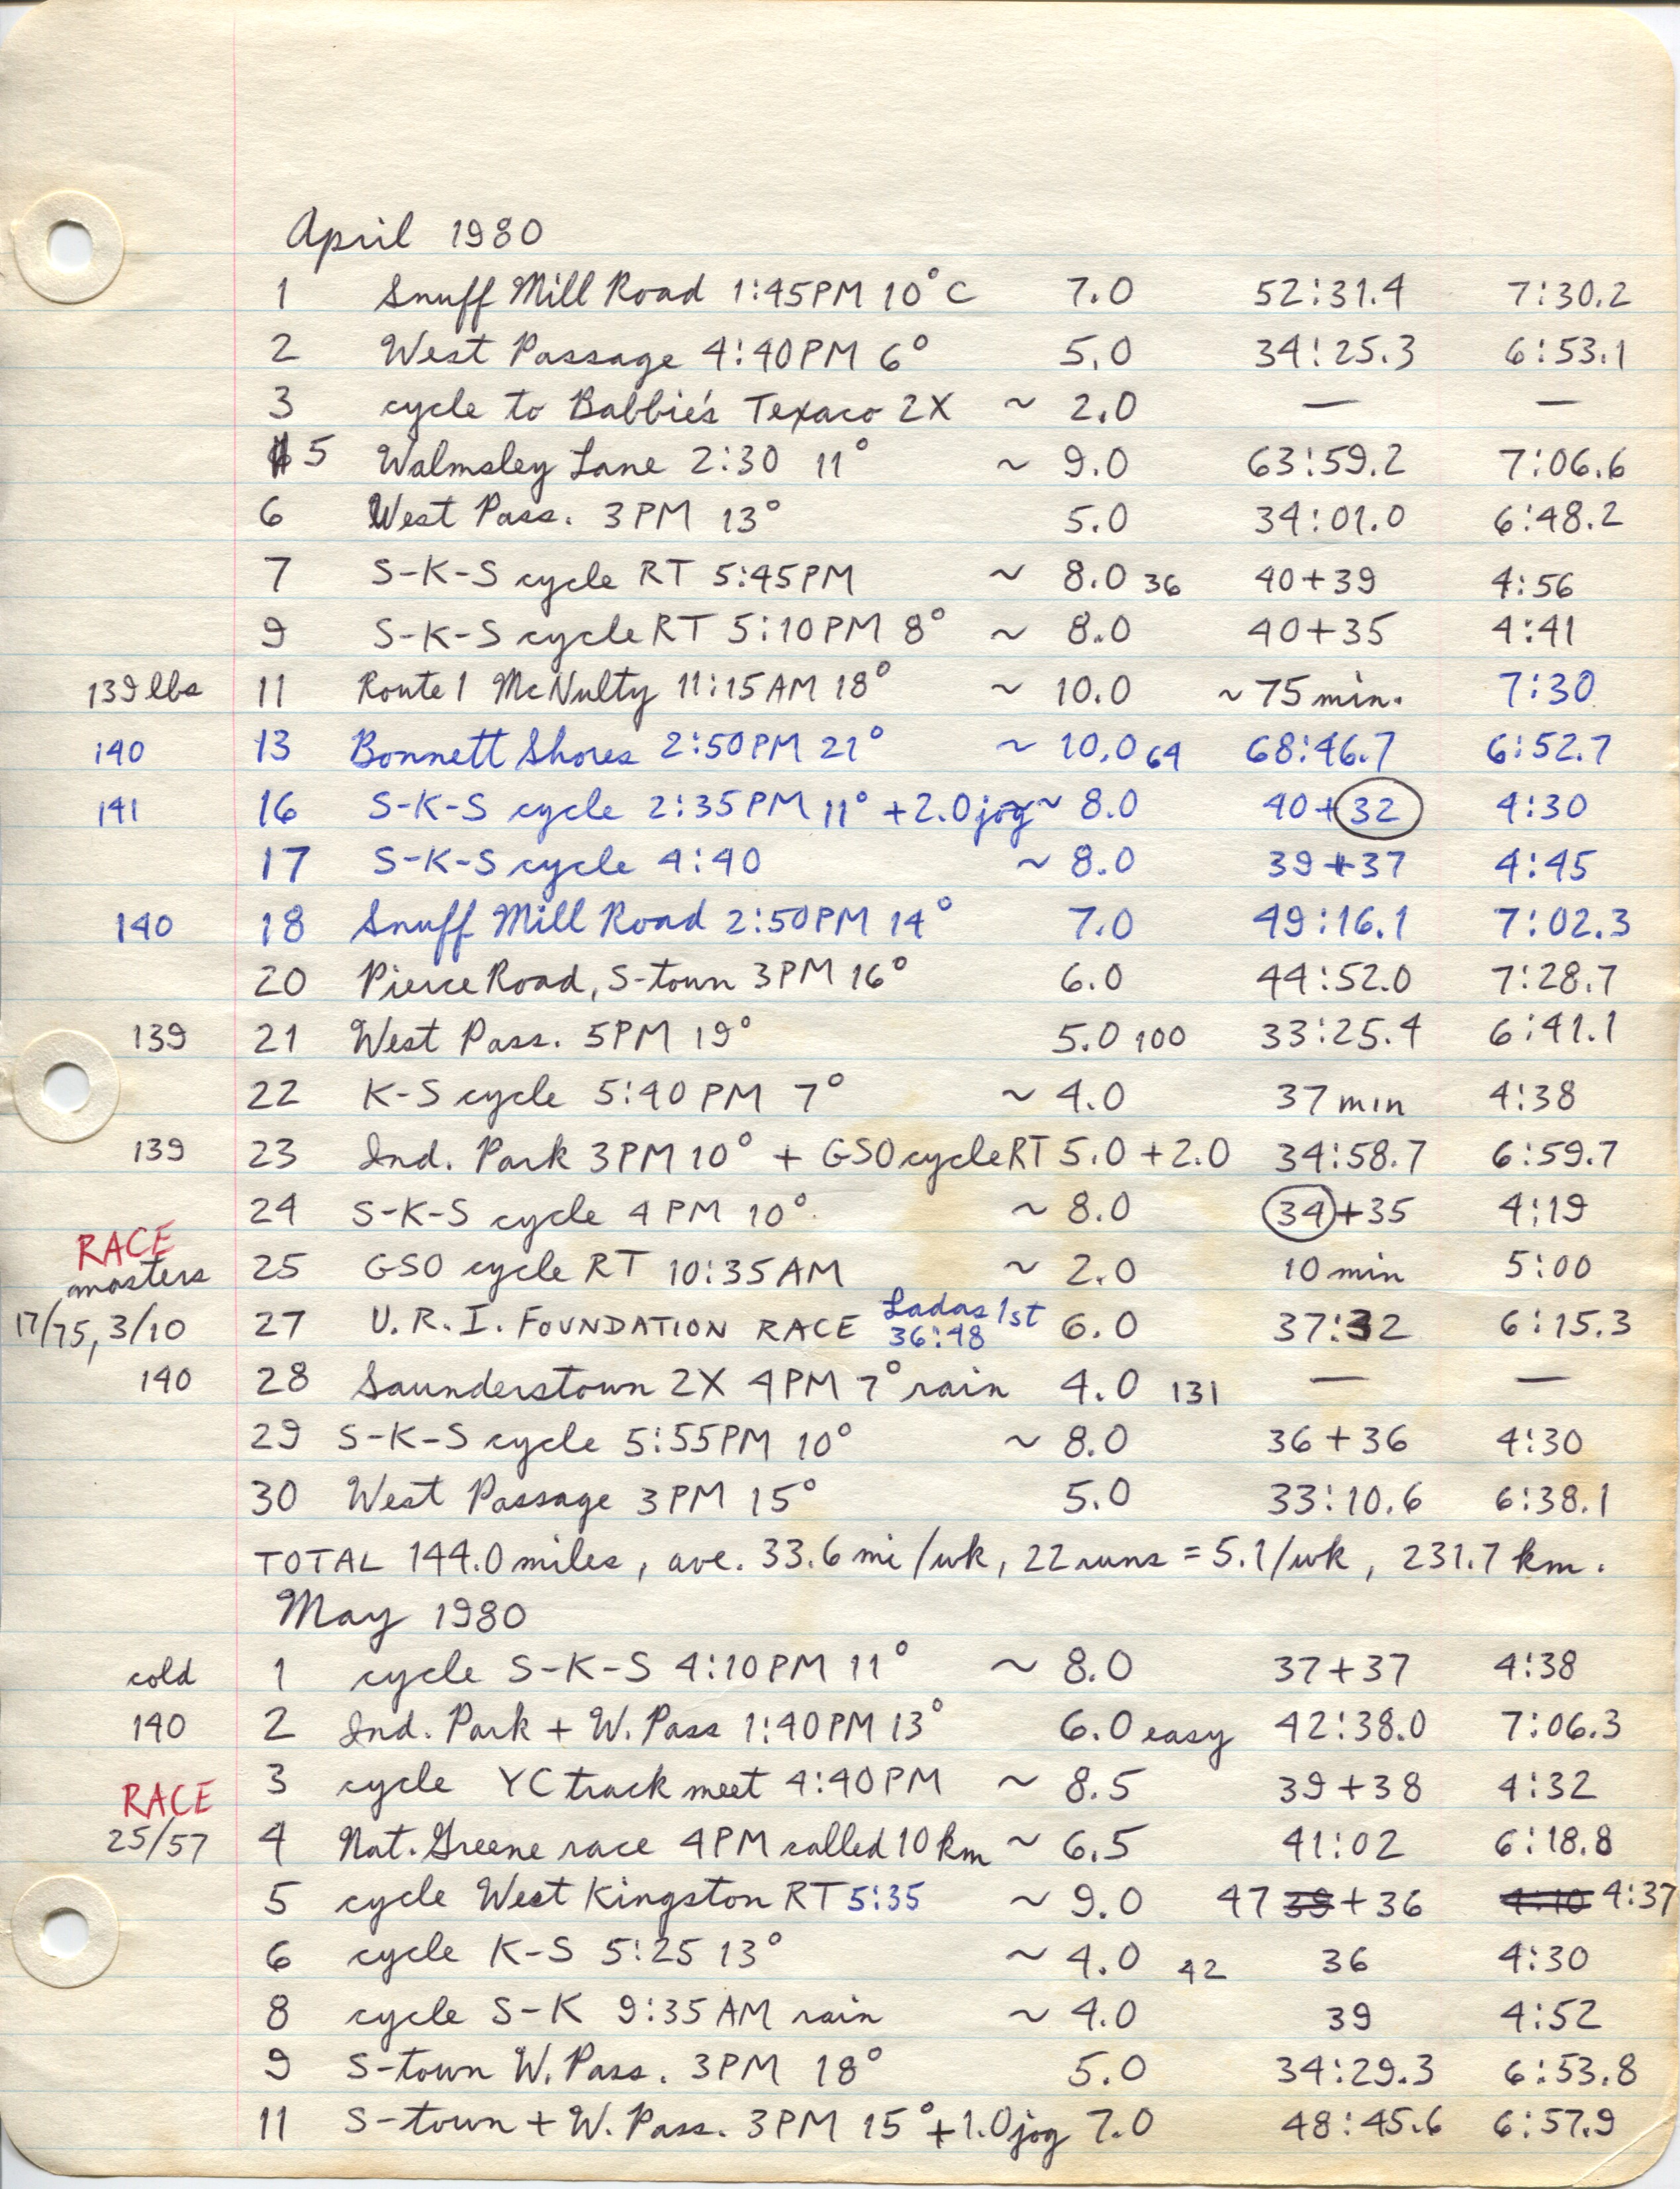 April 1980
1 Snuff Mill Road 1:45PM 10°C 7.0 52:31.4 7:30.2
2 West Passage 4:40PM 6° 5.0 34:25.3 6:53.1
3 cycle to Babbie's Texaco 2X ~ 2.0 — —
5 Walmsley Lane 2:30 11° ~ 9.0 63:59.2 7:06.6
6 West Pass. 3PM 13° 5.0 34:01.0 6:48.2
7 S-K-S cycle RT 5:45PM ~ 8.0 36 40+39 4:56
9 S-K-S cycle RT 5:10PM 8° ~ 8.0 40+35 4:41
139 lbs 11 Route 1 McNulty 11:15AM 18° ~ 10.0 ~75 min. 7:30
140 13 Bonnett Shores 2:50PM 21° ~ 10.0 64 68:46.7 6:52.7
141 16 S-K-S cycle 2:35PM 11° +2.0 jog ~ 8.0 40+32 4:30
17 S-K-S cycle 4:40 ~ 8.0 39+37 4:45
140 18 Snuff Mill Road 2:50PM 14° 7.0 49:16.1 7:02.3
20 Pierce Road, S-town 3PM 16° 6.0 44:52.0 7:28.7
139 21 West Pass. 5PM 19° 5.0 100 33:25.4 6:41.1
22 K-S cycle 5:40PM 7° ~ 4.0 37 min 4:38
139 23 Ind. Park 3PM 10° + GSO cycle RT 5.0 + 2.0 34:58.7 6:59.7
24 S-K-S cycle 4PM 10° ~ 8.0 34+35 4:19
RACE
masters 25 GSO cycle RT 10:35AM ~ 2.0 10 min 5:00
17/75, 3/10 27 U.R.I. FOUNDATION RACE Ladas 1st 36:48 6.0 37:32 6:15.3
140 28 Saunderstown 2X 4PM 7° rain 4.0 131 — —
29 S-K-S cycle 5:55PM 10° ~ 8.0 36+36 4:30
30 West Passage 3PM 15° 5.0 33:10.6 6:38.1
TOTAL 144.0 miles, ave. 33.6 mi/wk, 22 runs = 5.1/wk, 231.7 km.
May 1980
cold 1 cycle S-K-S 4:10PM 11° ~ 8.0 37+37 4:38
140 2 Ind. Park + W. Pass 1:40PM 13° 6.0 easy 42:38.0 7:06.3
RACE 3 cycle YC track meet 4:40PM ~ 8.5 39+38 4:32
25/57 4 Nat. Greene race 4PM called 10 km ~ 6.5 41:02 6:18.8
5 cycle West Kingston RT 5:35 ~ 9.0 47 39+36 4:10 4:37
6 cycle K-S 5:25 13° ~ 4.0 42 36 4:30
8 cycle S-K 9:35AM rain ~ 4.0 39 4:52
9 S-town W. Pass. 3PM 18° 5.0 34:29.3 6:53.8
11 S-town + W. Pass. 3PM 15° +1.0 jog 7.0 48:45.6 6:57.9